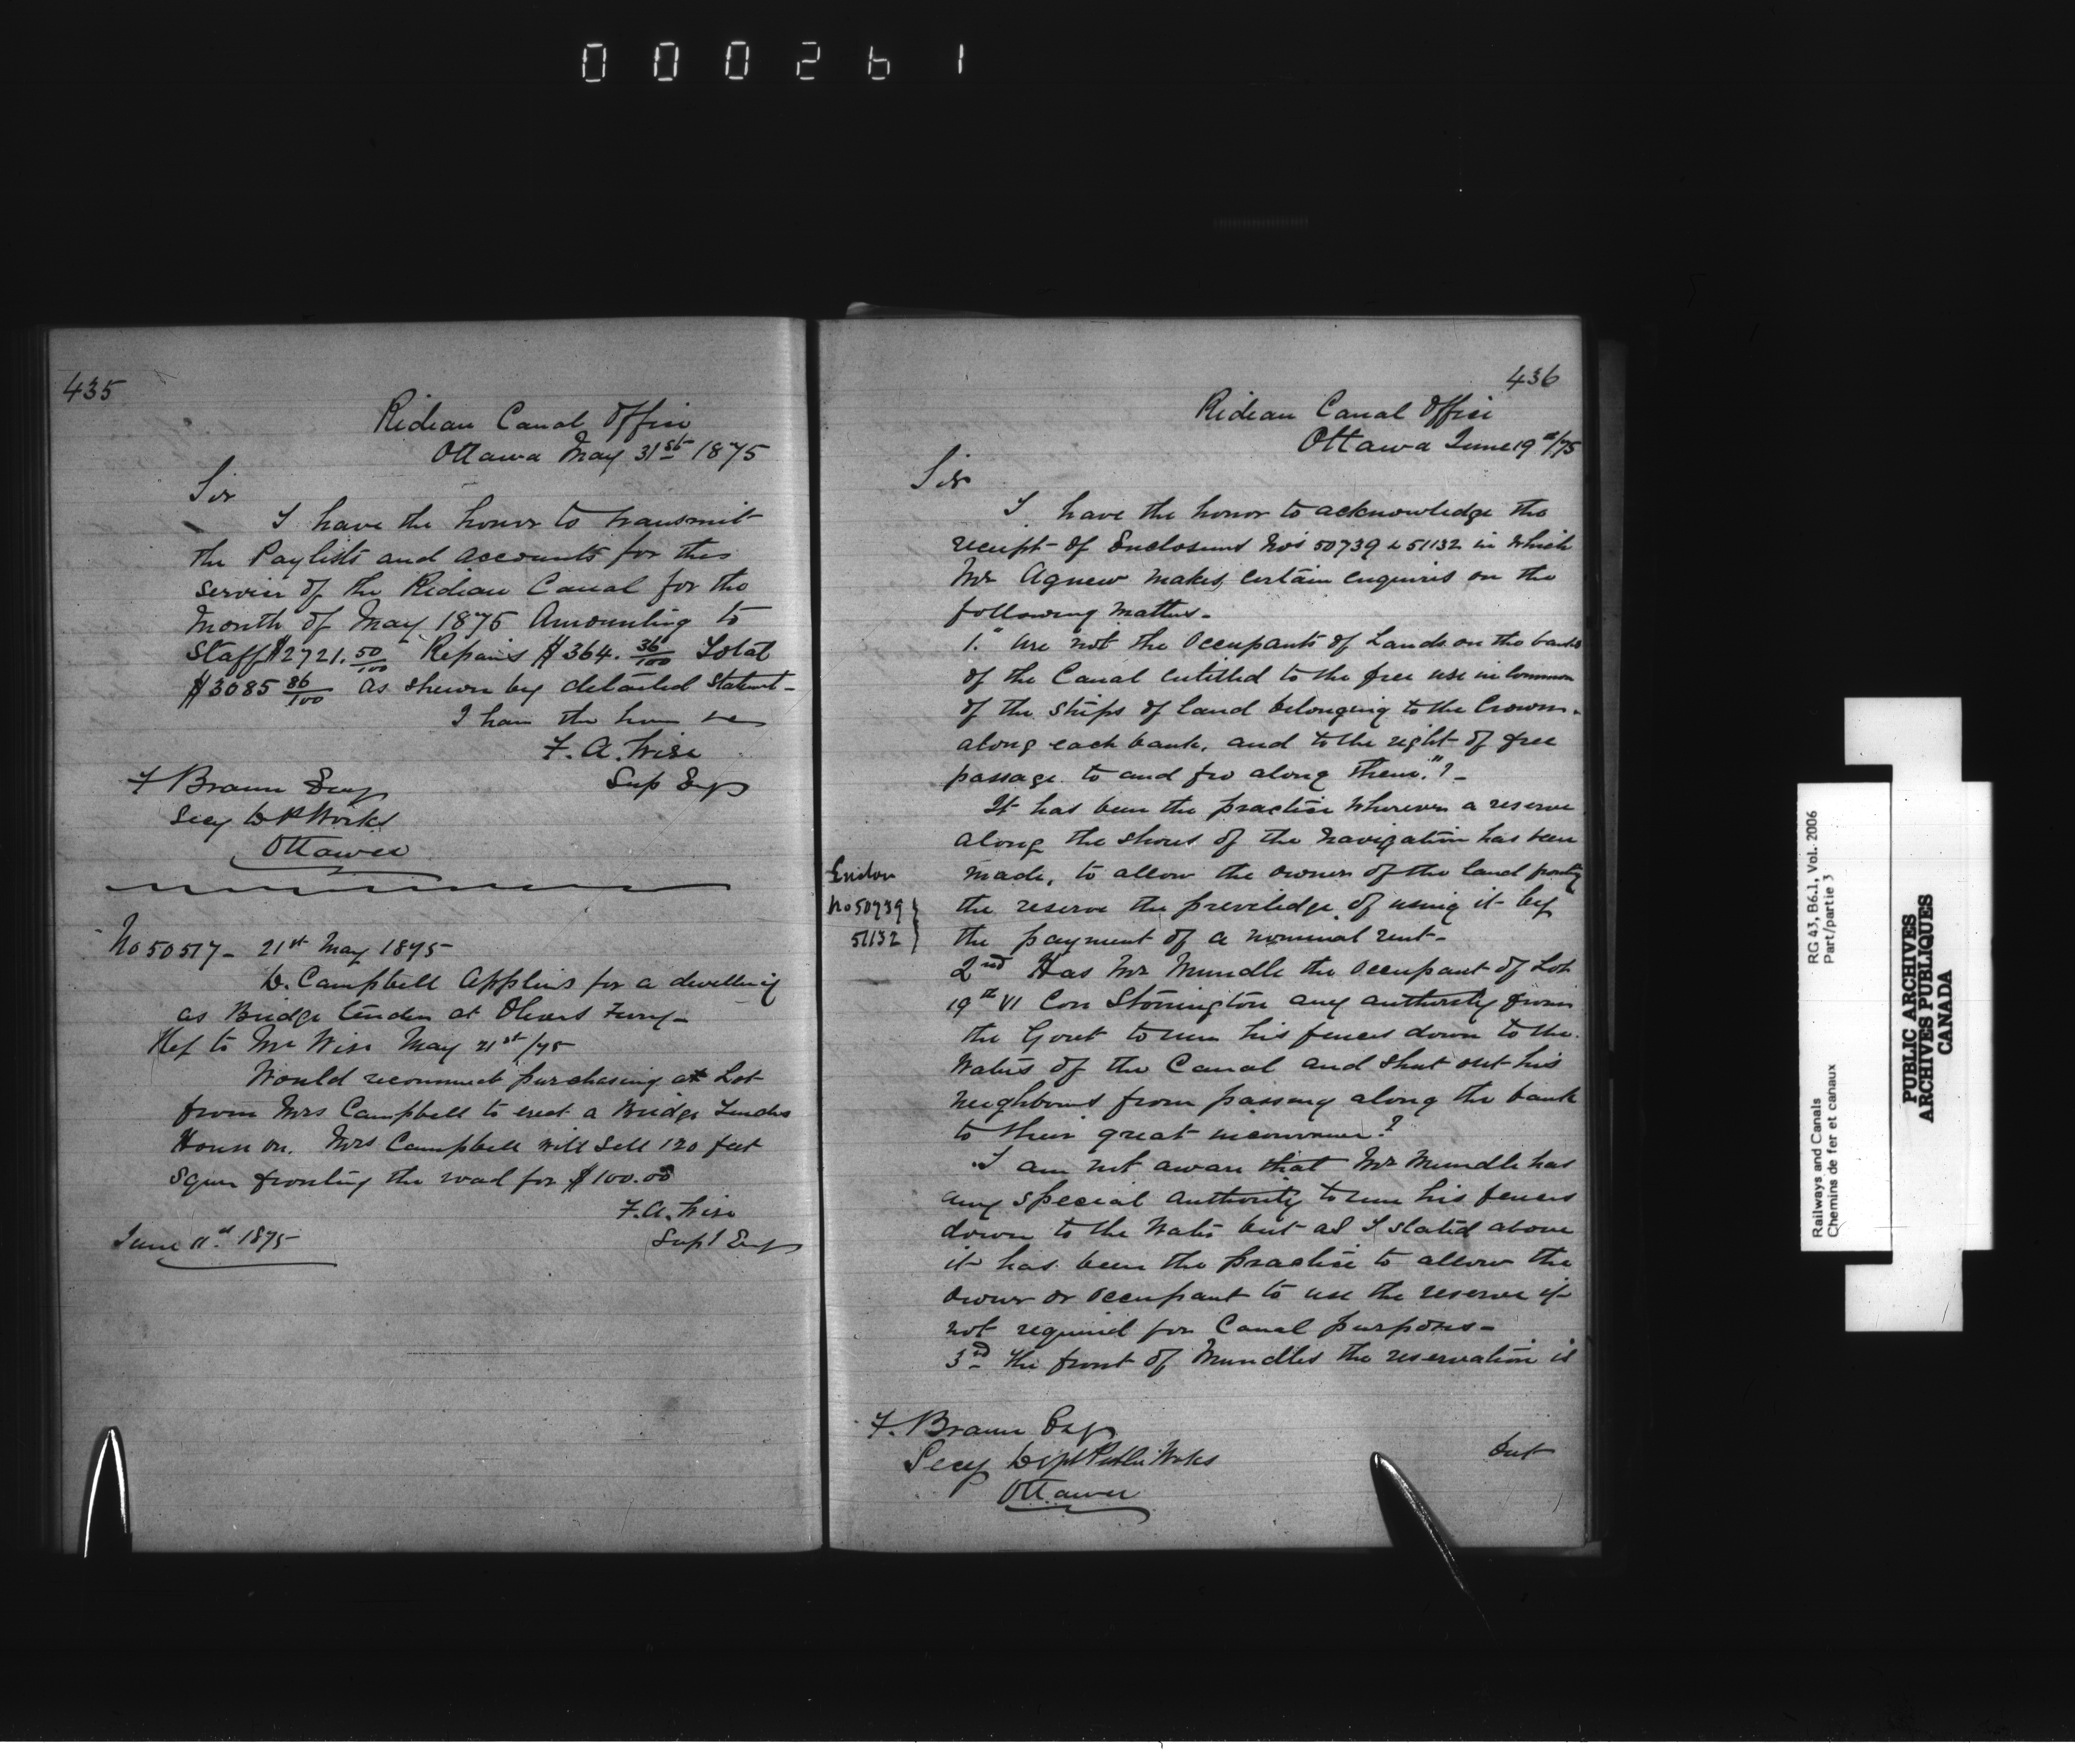 000261
435
Rideau Canal Office
Ottawa May 31st 1875
Sir
I have the honor to transmit
the Paylists and Accounts for the
service of the Rideau Canal for the
Month of May 1875 Amounting to
Staff $2721.50/100 Repairs $364.36/100 Total
$3085 86/100 as shewn by detailed Statemt-
I have the honor
F. A. Wise
Sup Eng
F Braun Esq
Secy D P Works
Ottawa
No 50517- 21st May 1875
D. Campbell Applies for a dwelling
as Bridge tender at Olivers Ferry-
Ref to Mr Wise May 21st/75
Would recommend purchasing a Lot
from Mrs Campbell to erect a Bridge Tenders
House on. Mrs Campbell will sell 120 feet
Square fronting the road for $100.00
F. A. Wise
Supt Eng
June 11th 1875
436
Rideau Canal Office
Ottawa June 19th/75
Sir
I have the honor to acknowledge the
receipt of Enclosures No's 50739 & 51132 in which
Mr Agnew makes certain enquiries on the
following matters-
1. "Are not the Occupants of Lands on the banks
of the Canal entitled to the free use in common
of the strips of land belonging to the Crown
along each bank, and to the right of free
passage to and fro along them"?-
It has been the practise wherever a reserve
along the shores of the navigation has been
made, to allow the owner of the land fronting
the reserve the previledge of using it by
the payment of a nominal rent-
Enclos
No 50739
51132
2nd Has Mr Mundle the Occupant of Lot
19th VI Con Storrington any authority from
the Govt to run his fences down to the
Waters of the Canal and shut out his
neighbours from passing along the bank
to their great inconvenience?
I am not aware that Mr Mundle has
any special authority to run his fences
down to the Water but as I stated above
it has been the practise to allow the
owner or occupant to use the reserve if
not required for Canal purposes-
3rd The front of Mundles the reservation is
F. Braun Esq
Secy Dept Public Works
Ottawa
but
RG 43, B6.1, Vol. 2006
Part/partie 3
Railways and Canals
Chemins de fer et canaux
PUBLIC ARCHIVES
ARCHIVES PUBLIQUES
CANADA